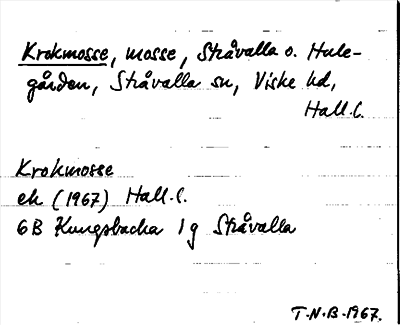 Krokmosse, mosse, Stråvalla o. Hule-
gården, Stråvalla sn, Viske hd,
Hall.l.
Krokmosse
ek (1967) Hall.l.
6B Kungsbacka 1g Stråvalla
T.N.B-1967.